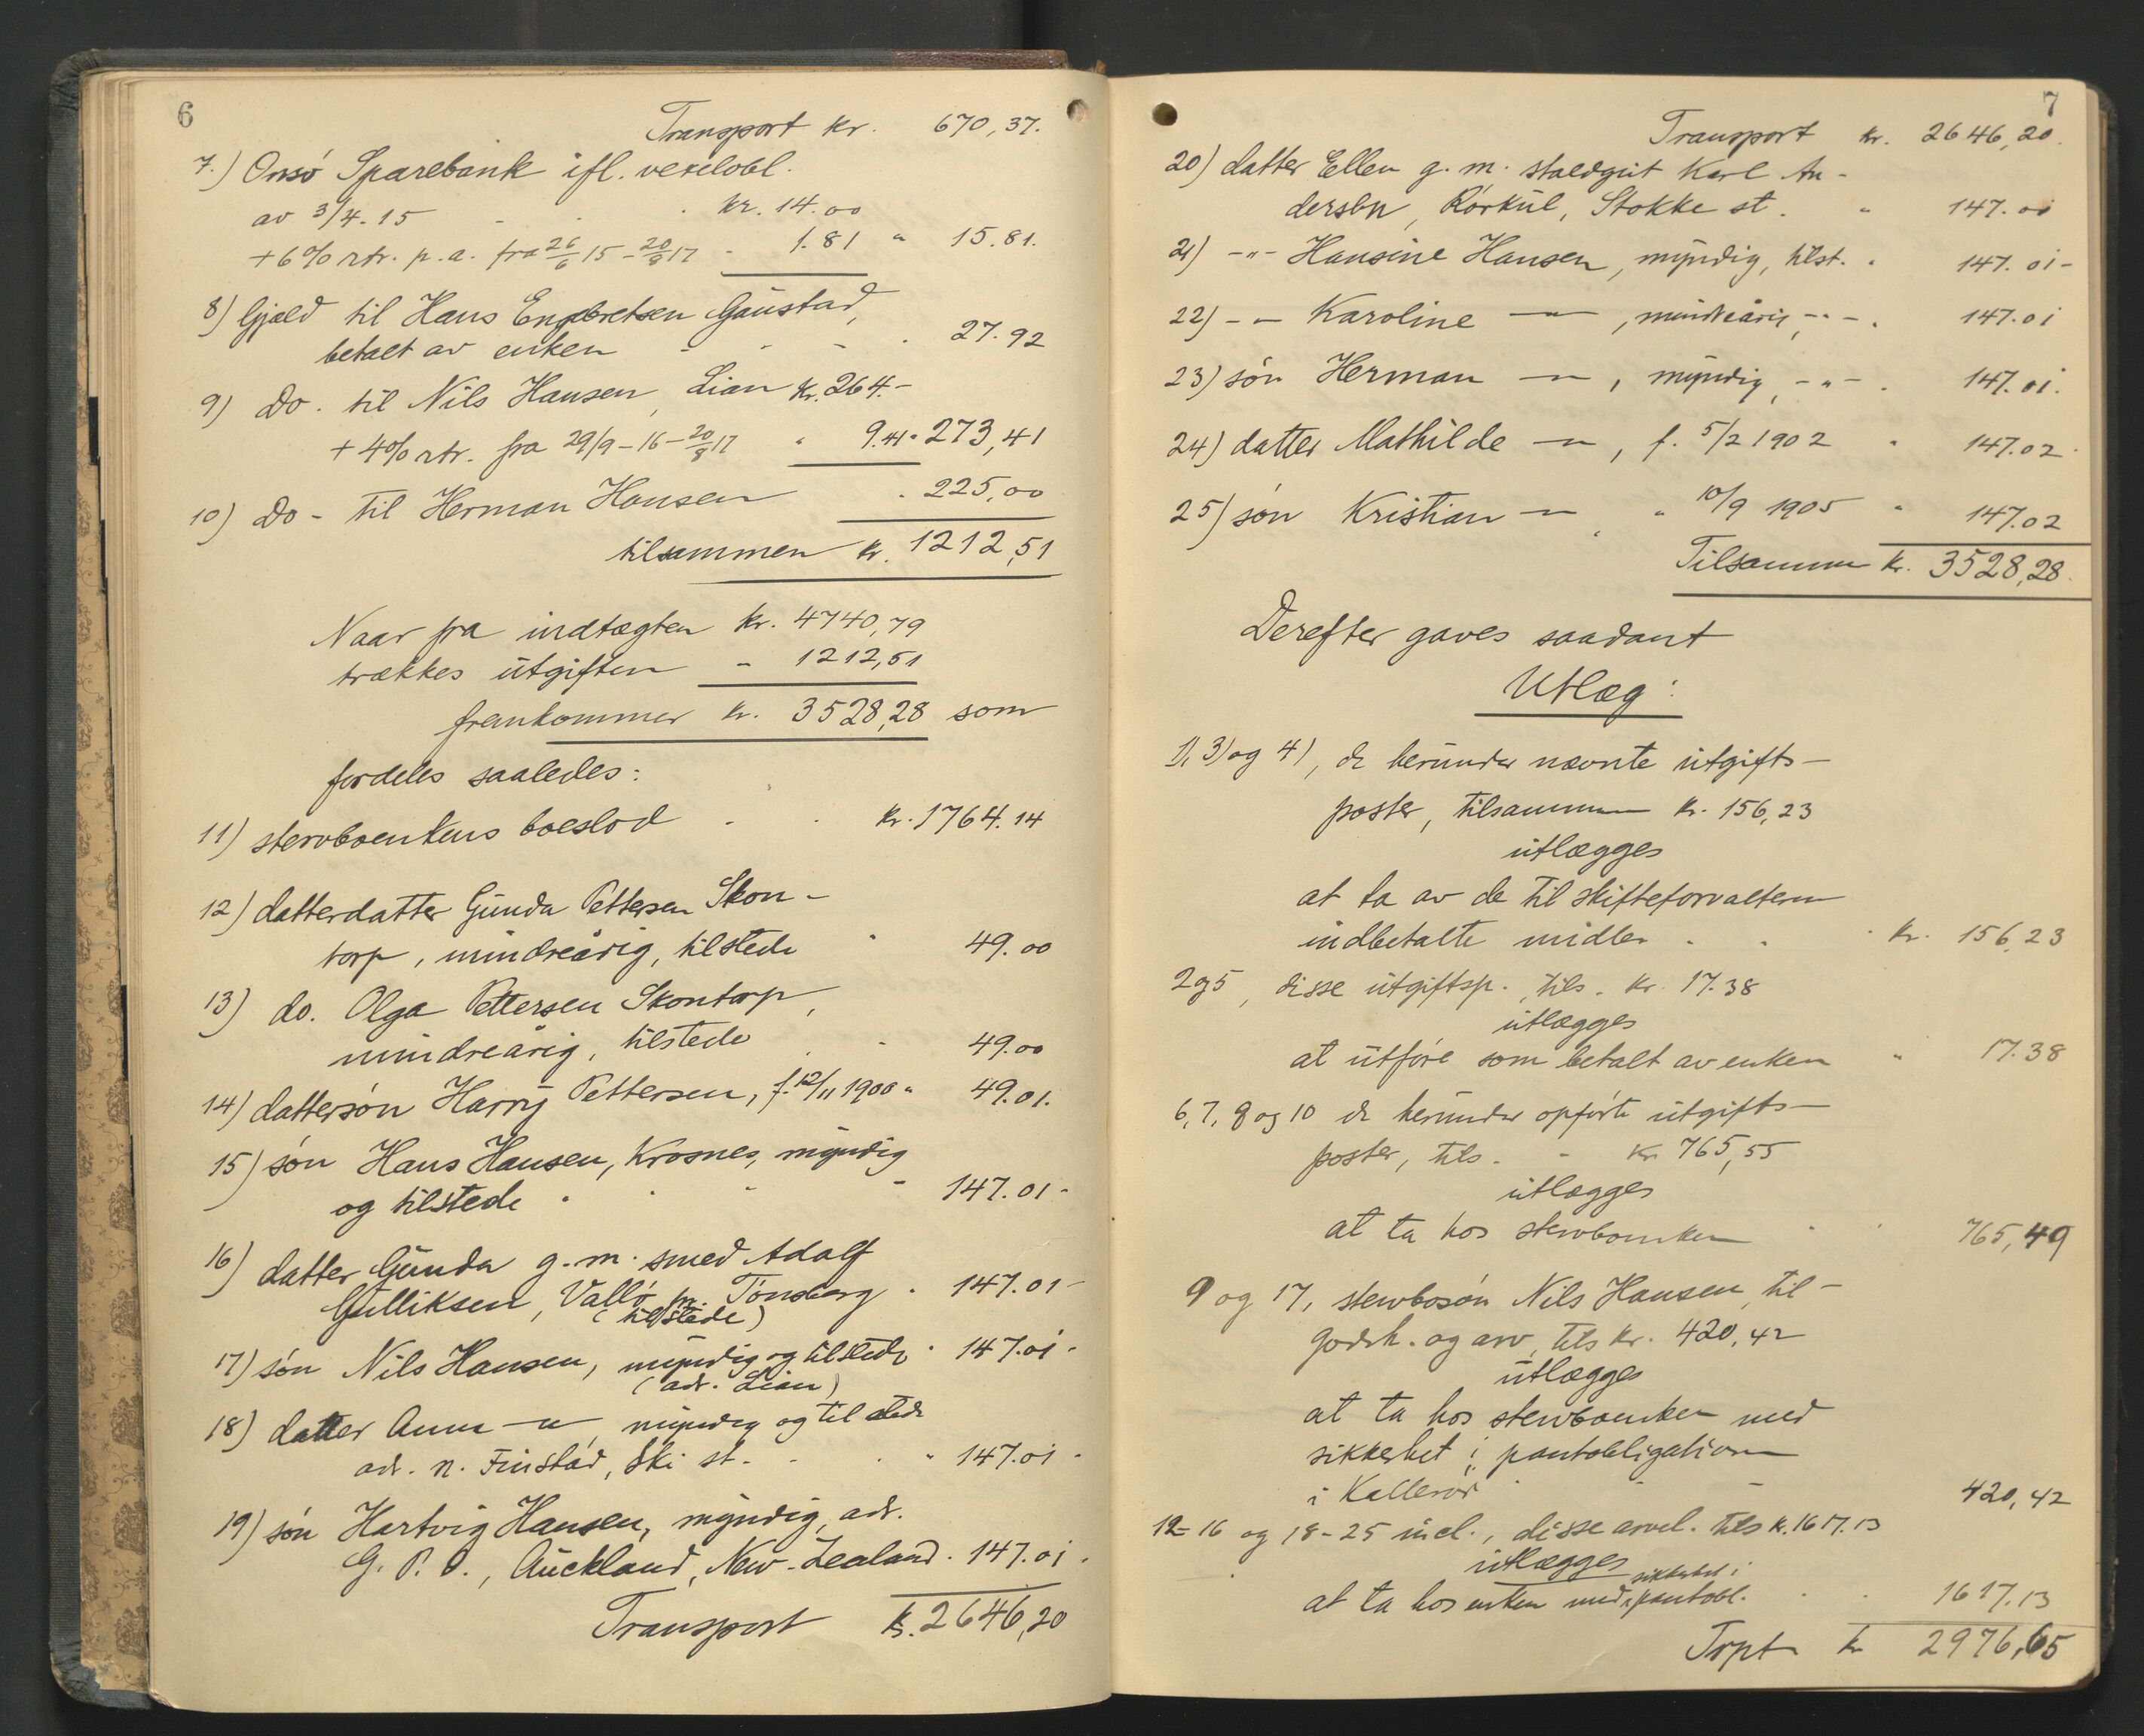 6
Transport kr. 670,37.
7.) Onsö Sparebank ifl. vexelobl.
av 3/4.15 - - kr. 14.00
+6% rtr. p.a. fra 26/6 15 - 20/8 17 - 1.81 " 15.81.
8) Gjæld til Hans Engebretsen Gaustad,
betalt av enken - - - - 27.92
9) Do. til Nils Hansen, Lian kr. 264.-
+ 4% rtr. fra 29/9-16-20/8 17 " 9.41 " 273,41
10) Do - til Herman Hansen - 225,00
tilsammen kr. 1212,51
Naar fra indtægten kr. 4740,79
trækkes utgiften - 1212,51
fremkommer kr. 3528,28 som
fordeles saaledes:
11) stervboenkens boeslod - - kr. 1764.14
12) datterdatter Gunda Pettersen Skon-
torp, mindreårig, tilstede " 49.00
13) do. Olga Pettersen Skontorp,
mindreårig, tilstede - - 49.00
14) dattersön Harry Pettersen, f. 12/11 1900 " 49.01.
15) sön Hans Hansen, Krosnes, myndig
og tilstede - - - - 147.01-
16) datter Gunda g.m. smed Adolf
Gulliksen, Vallö pr. Tönsberg - 147.01-
(tilstede)
17) sön Nils Hansen, myndig og tilstede - 147.01-
(adr. Lian)
18) datter Anna -"-, myndig og tilstede
adr. n. Finstad, Ski st. - - " 147.01-
19) sön Hartvig Hansen, myndig, adr.
G. P. O., Auckland, New-Zealand - 147.01.
Transport kr. 2646,20
7
Transport kr. 2646,20.
20) datter Ellen g.m. staldgut Karl An-
dersen, Rörkul, Stokke st. " 147.01
21) -"- Hansine Hansen, myndig, tilst. " 147.01-
22) -"- Karoline -"-, mindreårig, -"-. 147.01
23) sön Herman -"-, myndig, -"-. 147.01.
24) datter Mathilde -"-, f. 5/2 1902 " 147.02.
25) sön Kristian -"- " 10/9 1905 " 147.02
Tilsammen kr. 3528,28.
Derefter gaves saadant
Utlæg:
1), 3) og 4), de herunder nævnte utgifts-
poster, tilsammen kr. 156,23
utlægges
at ta av de til skifteforvalteren
indbetalte midler - - - kr. 156,23
2 og 5, disse utgiftsp., tils. kr. 17.38
utlægges
at utföre som betalt av enken " 17.38
6, 7, 8 og 10 de herunder opförte utgifts-
poster, tils. - kr. 765,55
utlægges
at ta hos stervboenken - - 765,49
9 og 17, stervbosön Nils Hansen, til-
godeh. og arv, tils kr. 420,42
utlægges
at ta hos stervboenken med
sikkerhet i pantobligationen
i Kalleröd - - - 420,42
12-16 og 18-25 incl., disse arvel. tils kr. 1617.13
utlægges
sikkerhet i
at ta hos enken med pantobl. - - 1617.13
Trpt kr 2976,65